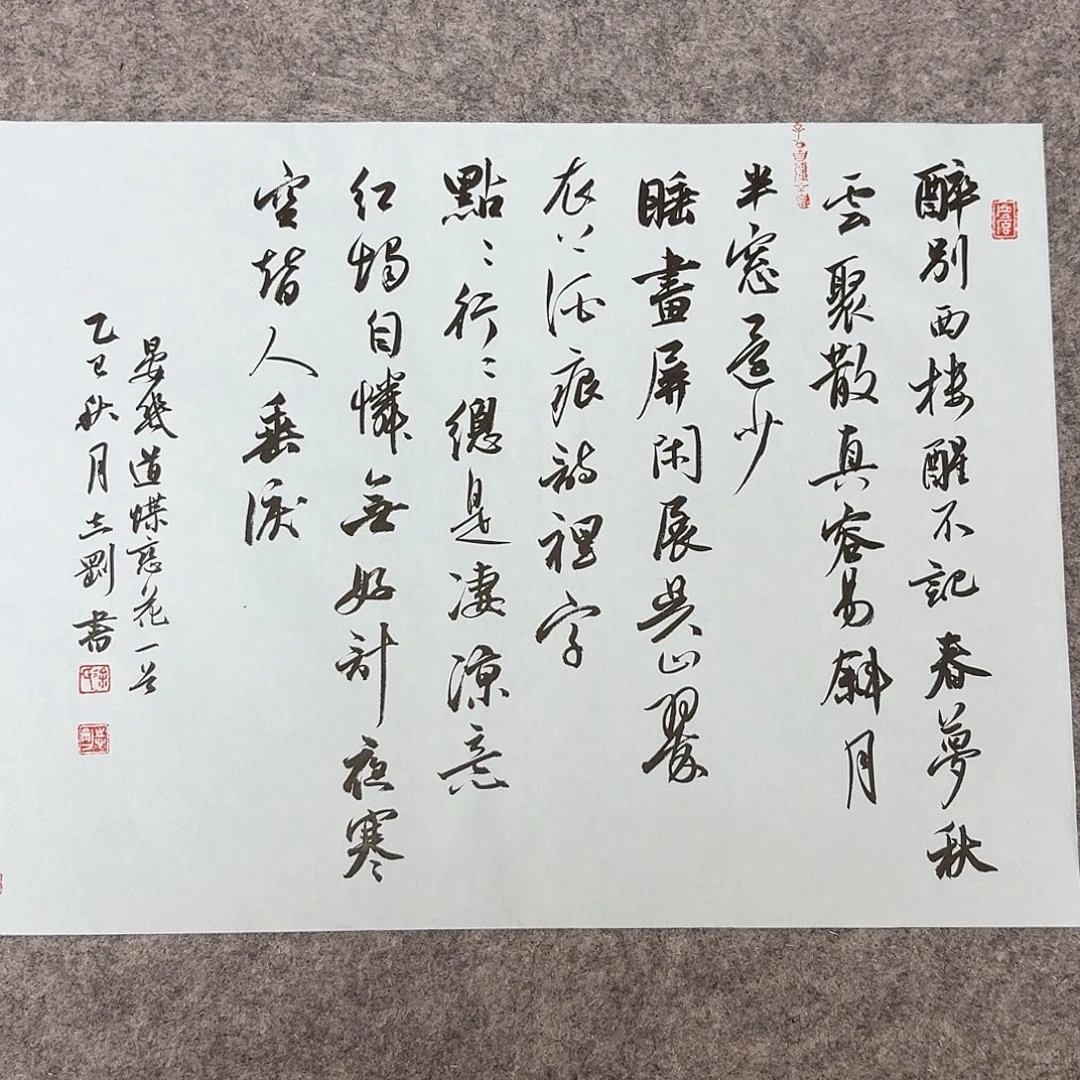 醉別西樓醒不記春夢秋
雲聚散真容易斜月
半窗還少
睡畫屏閑展吳山翠
衣上酒痕詩裡字
點〻行〻總是淒涼意
紅燭自憐無好計夜寒
空替人垂淚
晏幾道蝶戀花一首
乙巳秋月志剛書